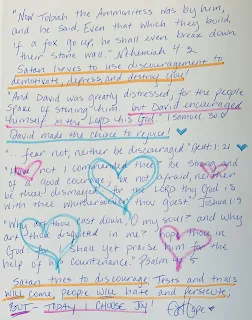 "Now Tobiah the Ammonite was by him,
and he said, Even that which they build,
if a fox go up, he shall even break down
their stone wall." Nehemiah 4:2
Satan loves to use discouragement to
demotivate, depress, and destroy you!
"And David was greatly distressed, for the people
spake of stoning him... but David encouraged
himself in the Lord his God" I Samuel 30:6
David made the choice to rejoice!
"... fear not, neither be discouraged" Deut. 1:21
not I commanded thee? be strong and
of a good courage; be not afraid, neither
be thou dismayed: for the LORD thy God is
with thee whithersoever thou goest" Joshua 1:9
"Why art thou cast down, O my soul? and why
art thou disquieted in me? hope thou in
God: for I shall yet praise him for the
help of his countenance." Psalm 42:5
Satan tries to discourage, Tests and trials
WILL come, people will hate and persecute,
BUT - TODAY, I CHOOSE JOY!